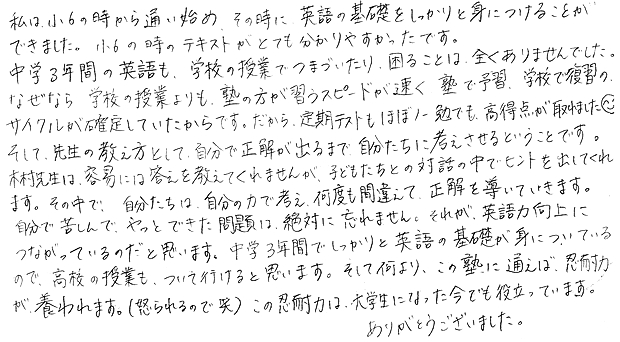 私は、小6の時から通い始め、その時に英語の基礎をしっかりと身につけることが
できました。小6の時のテキストがとても分かりやすかったです。
中学3年間の英語も、学校の授業でつまづいたり、困ることは、全くありませんでした。
なぜなら、学校の授業よりも、塾の方が習うスピードが速く、塾で予習、学校で復習の、
サイクルが確定していたからです。だから、定期テストもほぼノー勉でも、高得点が取れました☺
そして、先生の教え方として、自分で正解が出るまで自分たちに考えさせるということです。
木村先生は、容易には答えを教えてくれませんが、子どもたちとの対話の中でヒントを出してくれ
ます。その中で、自分たちは、自分の力で考え、何度も間違えて、正解を導いていきます。
自分で苦しんで、やっとできた問題は、絶対に忘れません。それが、英語力向上に
つながっているのだと思います。中学3年間でしっかりと英語の基礎が身についている
ので、高校の授業も、ついて行けると思います。そして何より、この塾に通えば、忍耐力
が、養われます。(怒られるので笑) この忍耐力は、大学生になった今でも役立っています。
ありがとうございました。